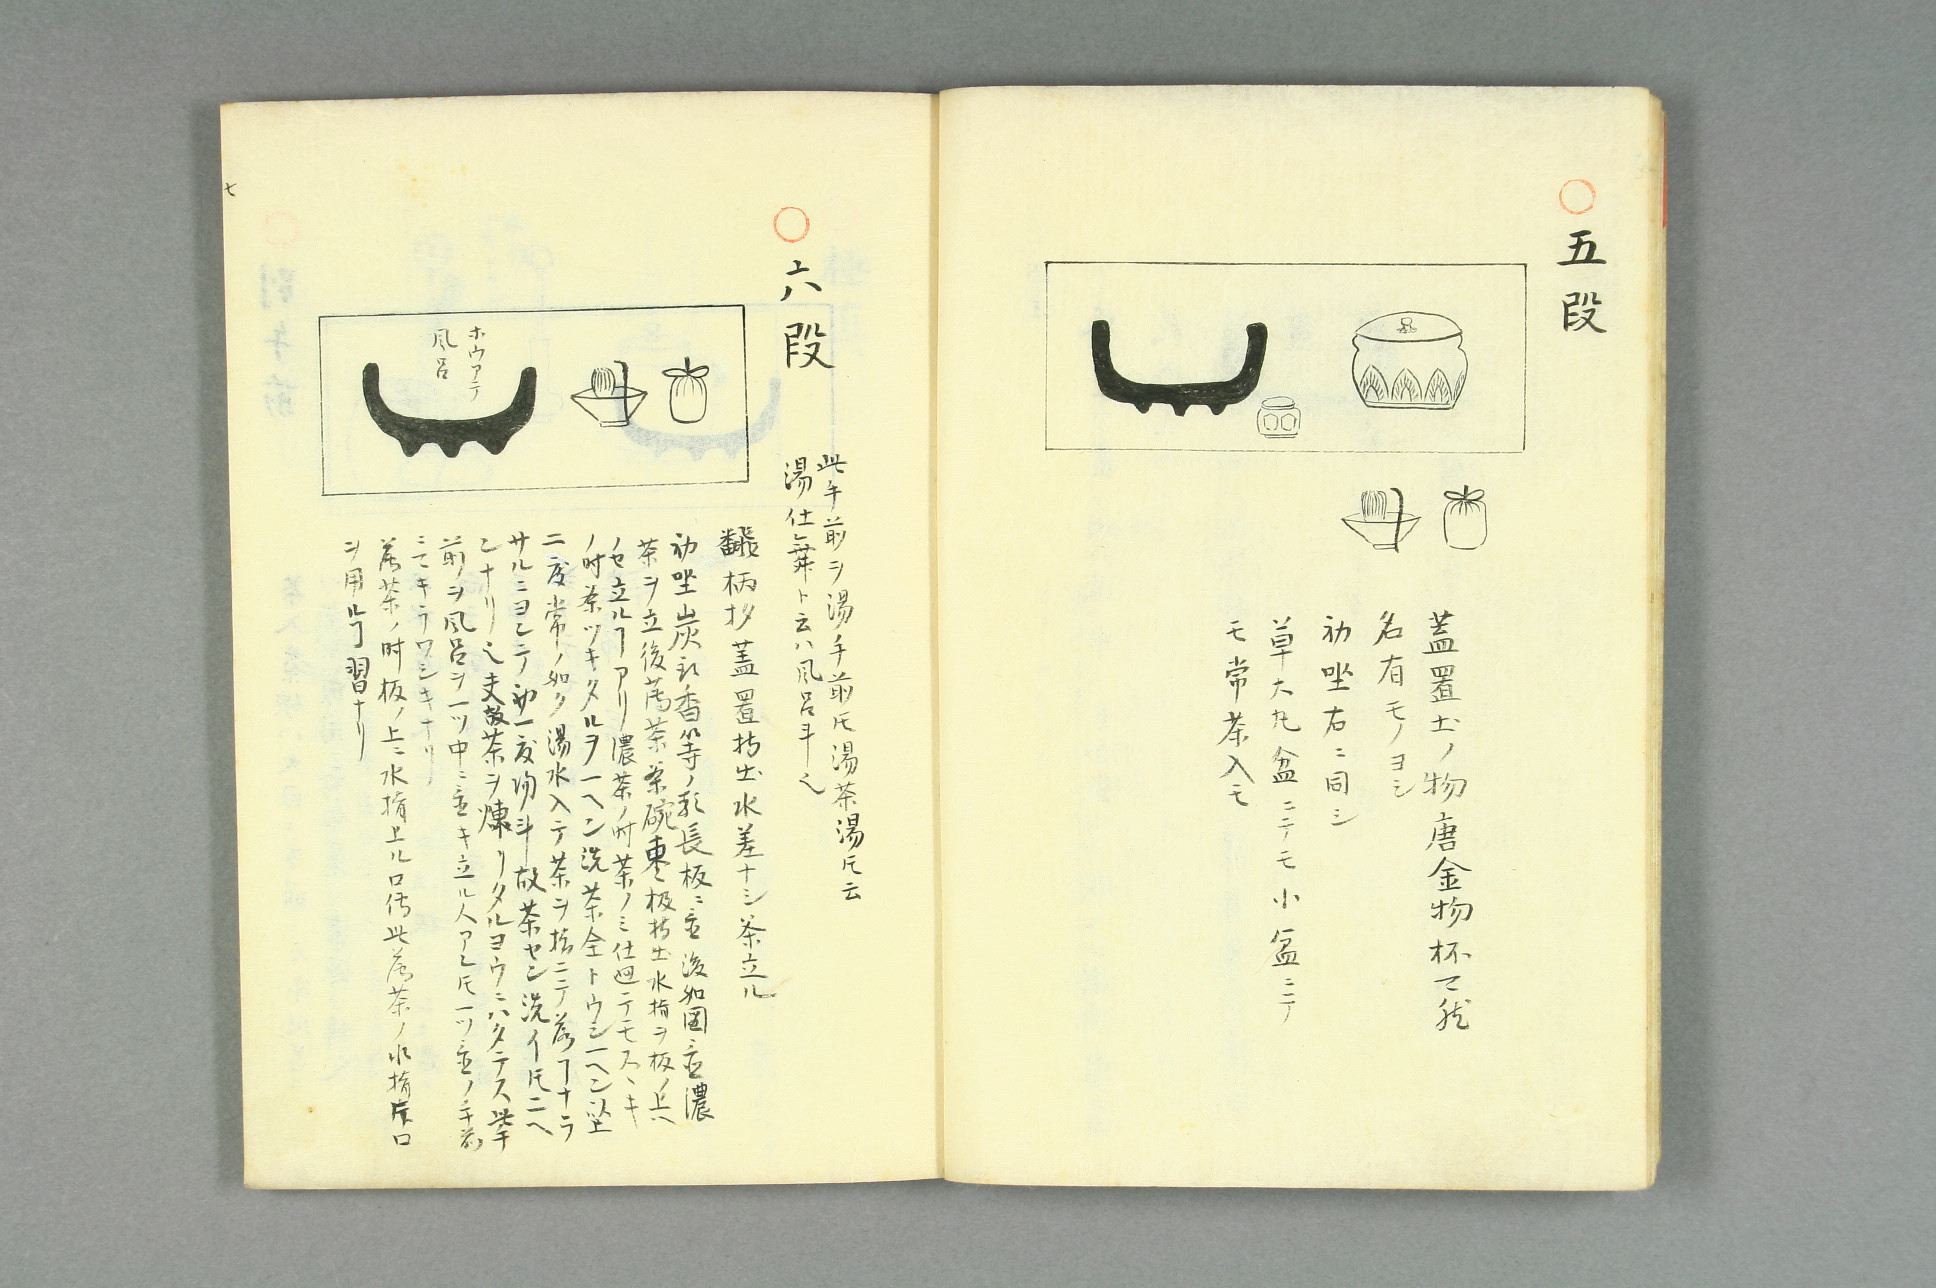 五段
蓋置土ノ物唐金物杯マ然
名有モノヨシ
初坐右ニ同シ
草大丸盆ニテモ小盆ニテ
モ常茶入モ
六段
此手前ヲ湯手前トモ湯茶湯トモ云
湯仕舞ト云ハ風呂斗也
ホウアテ
風呂
飜柄杓蓋置持出水差ナシ茶立ル
初坐炭取香等ノ形長板ニ置後如図置濃
茶ヲ立後薄茶茶碗棗板持出水指ヲ板ノ上ヘ
ノセ立ル┐アリ濃茶ノ時茶ノミ仕廻テモスヽキ
ノ時茶ツキタルヲ一ヘン洗茶全トウシ一ヘン以上
二度常ノ如ク湯水入テ茶ヲ捨ニテ落┐ナラ
サルニヨシテ初一度湯斗故茶セン洗イトモ二ヘ
ンナリ也夫故茶ヲ煉リタルヨウニハタテス此手
前ヲ風呂ヲ一ツ中ニ置キ立ル人アレトモ一ツ置ノ手前
ニテキラワシキナリ
薄茶ノ時板ノ上ニ水指上ル口伝此薄茶ノ水指片口
ヲ用ル┐習ナリ
七